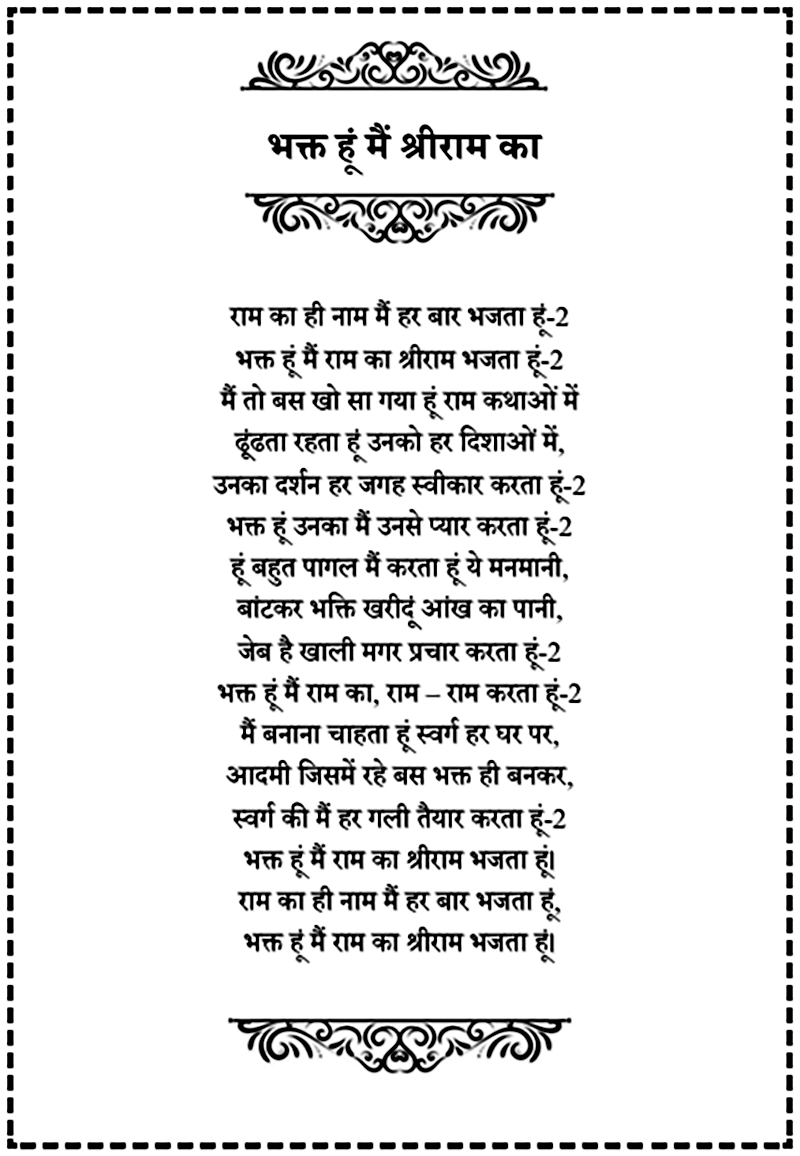 भक्त हूं मैं श्रीराम का
राम का ही नाम मैं हर बार भजता हूं-2
भक्त हूं मैं राम का श्रीराम भजता हूं-2
मैं तो बस खो सा गया हूं राम कथाओं में
ढूंढता रहता हूं उनको हर दिशाओं में,
उनका दर्शन हर जगह स्वीकार करता हूं-2
भक्त हूं उनका मैं उनसे प्यार करता हूं-2
हूं बहुत पागल मैं करता हूं ये मनमानी,
बांटकर भक्ति खरीदूं आंख का पानी,
जेब है खाली मगर प्रचार करता हूं-2
भक्त हूं मैं राम का, राम – राम करता हूं-2
मैं बनाना चाहता हूं स्वर्ग हर घर पर,
आदमी जिसमें रहे बस भक्त ही बनकर,
स्वर्ग की मैं हर गली तैयार करता हूं-2
भक्त हूं मैं राम का श्रीराम भजता हूं।
राम का ही नाम मैं हर बार भजता हूं,
भक्त हूं मैं राम का श्रीराम भजता हूं।